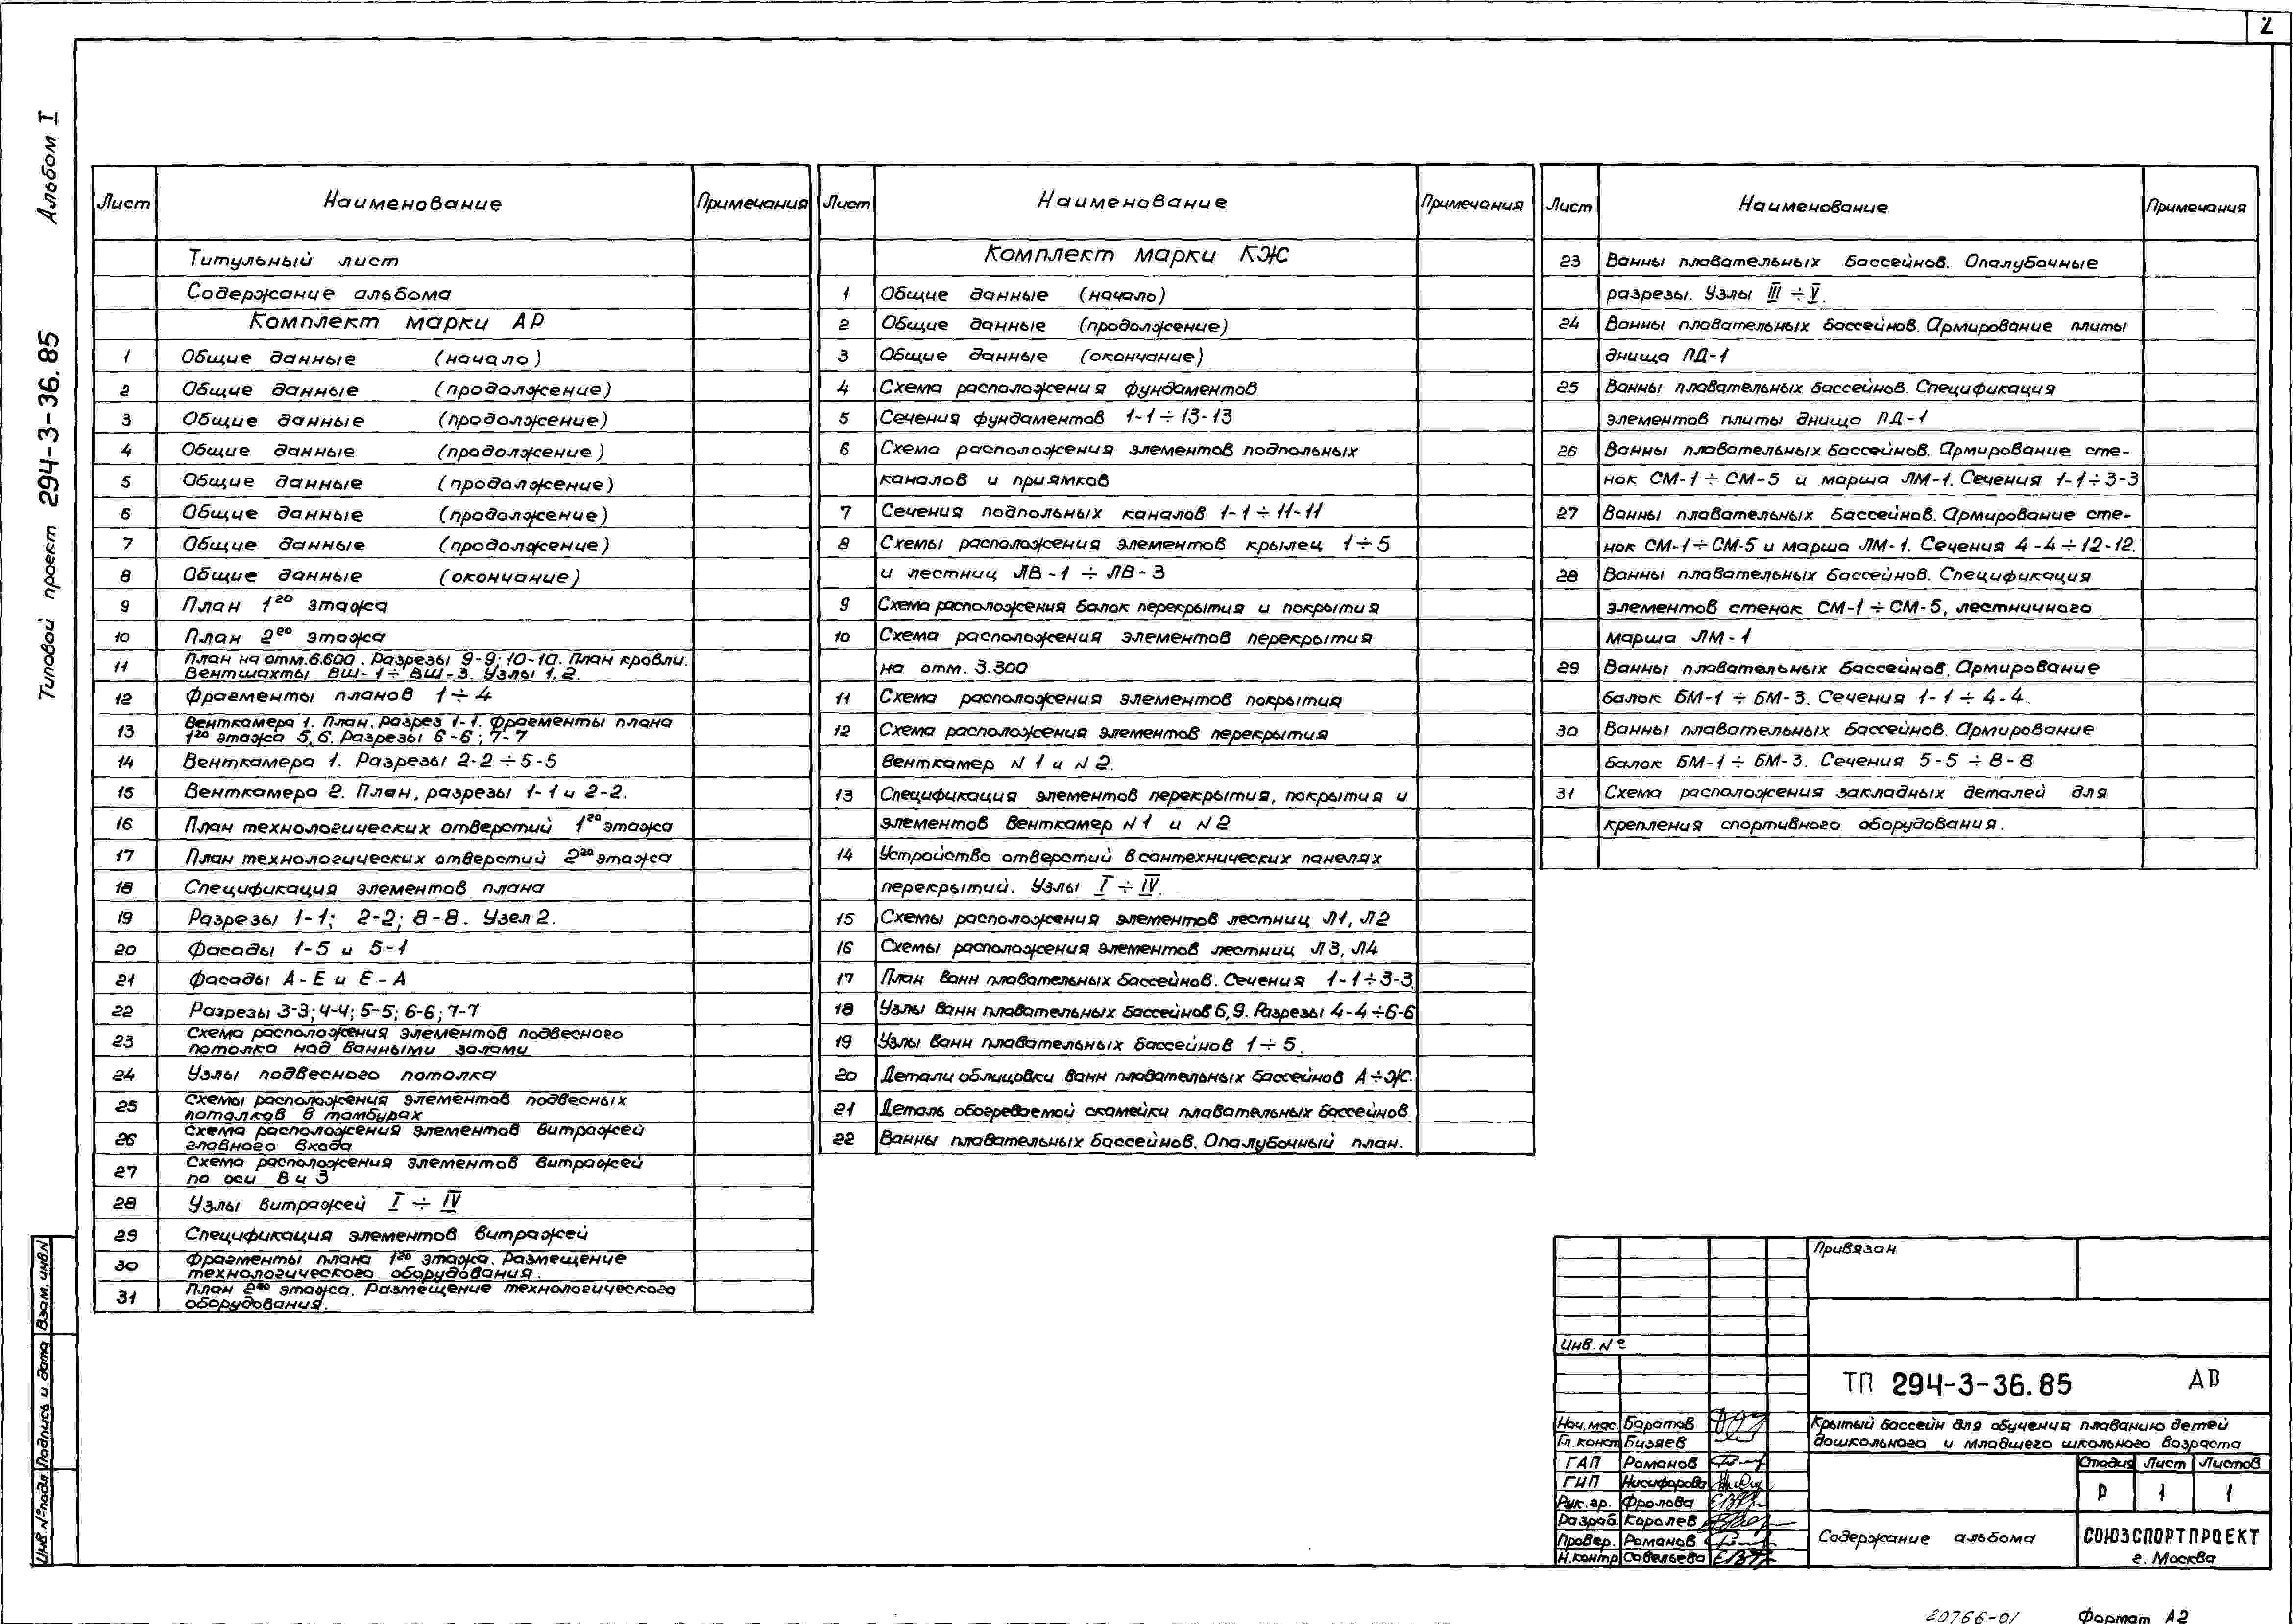 2
Альбом I
Типовой проект 294-3-36.85
Лист Наименование Примечания
Титульный лист
Содержание альбома
Комплект марки АР
1 Общие данные (начало)
2 Общие данные (продолжение)
3 Общие данные (продолжение)
4 Общие данные (продолжение)
5 Общие данные (продолжение)
6 Общие данные (продолжение)
7 Общие данные (продолжение)
8 Общие данные (окончание)
9 План 1го этажа
10 План 2го этажа
11 План на отм. 6.600. Разрезы 9-9; 10-10. План кровли.
Вентшахты ВШ-1÷ВШ-3. Узлы 1,2.
12 Фрагменты планов 1÷4
13 Венткамера 1. План. Разрез 1-1. Фрагменты плана
1го этажа 5,6. Разрезы 6-6; 7-7
14 Венткамера 1. Разрезы 2-2÷5-5
15 Венткамера 2. План, разрезы 1-1 и 2-2.
16 План технологических отверстий 1го этажа
17 План технологических отверстий 2го этажа
18 Спецификация элементов плана
19 Разрезы 1-1; 2-2; 8-8. Узел 2.
20 Фасады 1-5 и 5-1
21 Фасады А-Е и Е-А
22 Разрезы 3-3; 4-4; 5-5; 6-6; 7-7
23 Схема расположения элементов подвесного
потолка над ванными залами
24 Узлы подвесного потолка
25 Схемы расположения элементов подвесных
потолков в тамбурах
26 Схема расположения элементов витражей
главного входа
27 Схема расположения элементов витражей
по оси В и 3
28 Узлы витражей I ÷ IV
29 Спецификация элементов витражей
30 Фрагменты плана 1го этажа. Размещение
технологического оборудования.
31 План 2го этажа. Размещение технологического
оборудования.
Лист Наименование Примечания
Комплект марки КЖ
1 Общие данные (начало)
2 Общие данные (продолжение)
3 Общие данные (окончание)
4 Схема расположения фундаментов
5 Сечения фундаментов 1-1÷13-13
6 Схема расположения элементов подпольных
каналов и приямков
7 Сечения подпольных каналов 1-1÷11-11
8 Схемы расположения элементов крылец 1÷5
и лестниц ЛВ-1 ÷ ЛВ-3
9 Схема расположения балок перекрытия и покрытия
10 Схема расположения элементов перекрытия
на отм. 3.300
11 Схема расположения элементов покрытия
12 Схема расположения элементов перекрытия
венткамер N1 и N2.
13 Спецификация элементов перекрытия, покрытия и
элементов венткамер N1 и N2
14 Устройство отверстий в сантехнических панелях
перекрытий. Узлы I ÷ IV.
15 Схемы расположения элементов лестниц Л1, Л2
16 Схемы расположения элементов лестниц Л3, Л4
17 План ванн плавательных бассейнов. Сечения 1-1÷3-3.
18 Узлы ванн плавательных бассейнов 6,9. Разрезы 4-4÷6-6
19 Узлы ванн плавательных бассейнов 1÷5.
20 Детали облицовки ванн плавательных бассейнов А÷Ж.
21 Деталь обогреваемой скамейки плавательных бассейнов
22 Ванны плавательных бассейнов. Опалубочный план.
Лист Наименование Примечания
23 Ванны плавательных бассейнов. Опалубочные
разрезы. Узлы III ÷ V.
24 Ванны плавательных бассейнов. Армирование плиты
днища ПД-1
25 Ванны плавательных бассейнов. Спецификация
элементов плиты днища ПД-1
26 Ванны плавательных бассейнов. Армирование сте-
нок СМ-1÷СМ-5 и марша ЛМ-1. Сечения 1-1÷3-3
27 Ванны плавательных бассейнов. Армирование сте-
нок СМ-1÷СМ-5 и марша ЛМ-1. Сечения 4-4÷12-12.
28 Ванны плавательных бассейнов. Спецификация
элементов стенок СМ-1÷СМ-5, лестничного
марша ЛМ-1
29 Ванны плавательных бассейнов. Армирование
балок БМ-1 ÷ БМ-3. Сечения 1-1 ÷ 4-4.
30 Ванны плавательных бассейнов. Армирование
балок БМ-1 ÷ БМ-3. Сечения 5-5 ÷ 8-8
31 Схема расположения закладных деталей для
крепления спортивного оборудования.
Инв.№подл. Подпись и дата Взам. инв.N
Привязан
Инв. №
ТП 294-3-36.85
Нач.мас. Баратов
Гл.конст Бизяев
ГАП Романов
ГИП Никифорова
Рук.гр. Фролова
Разраб. Королев
Провер. Романов
Н.контр Савельева
Крытый бассейн для обучения плаванию детей
дошкольного и младшего школьного возраста
Стадия Лист Листов
Р 1 1
Содержание альбома
СОЮЗСПОРТПРОЕКТ
г. Москва
20766-01 Формат А2